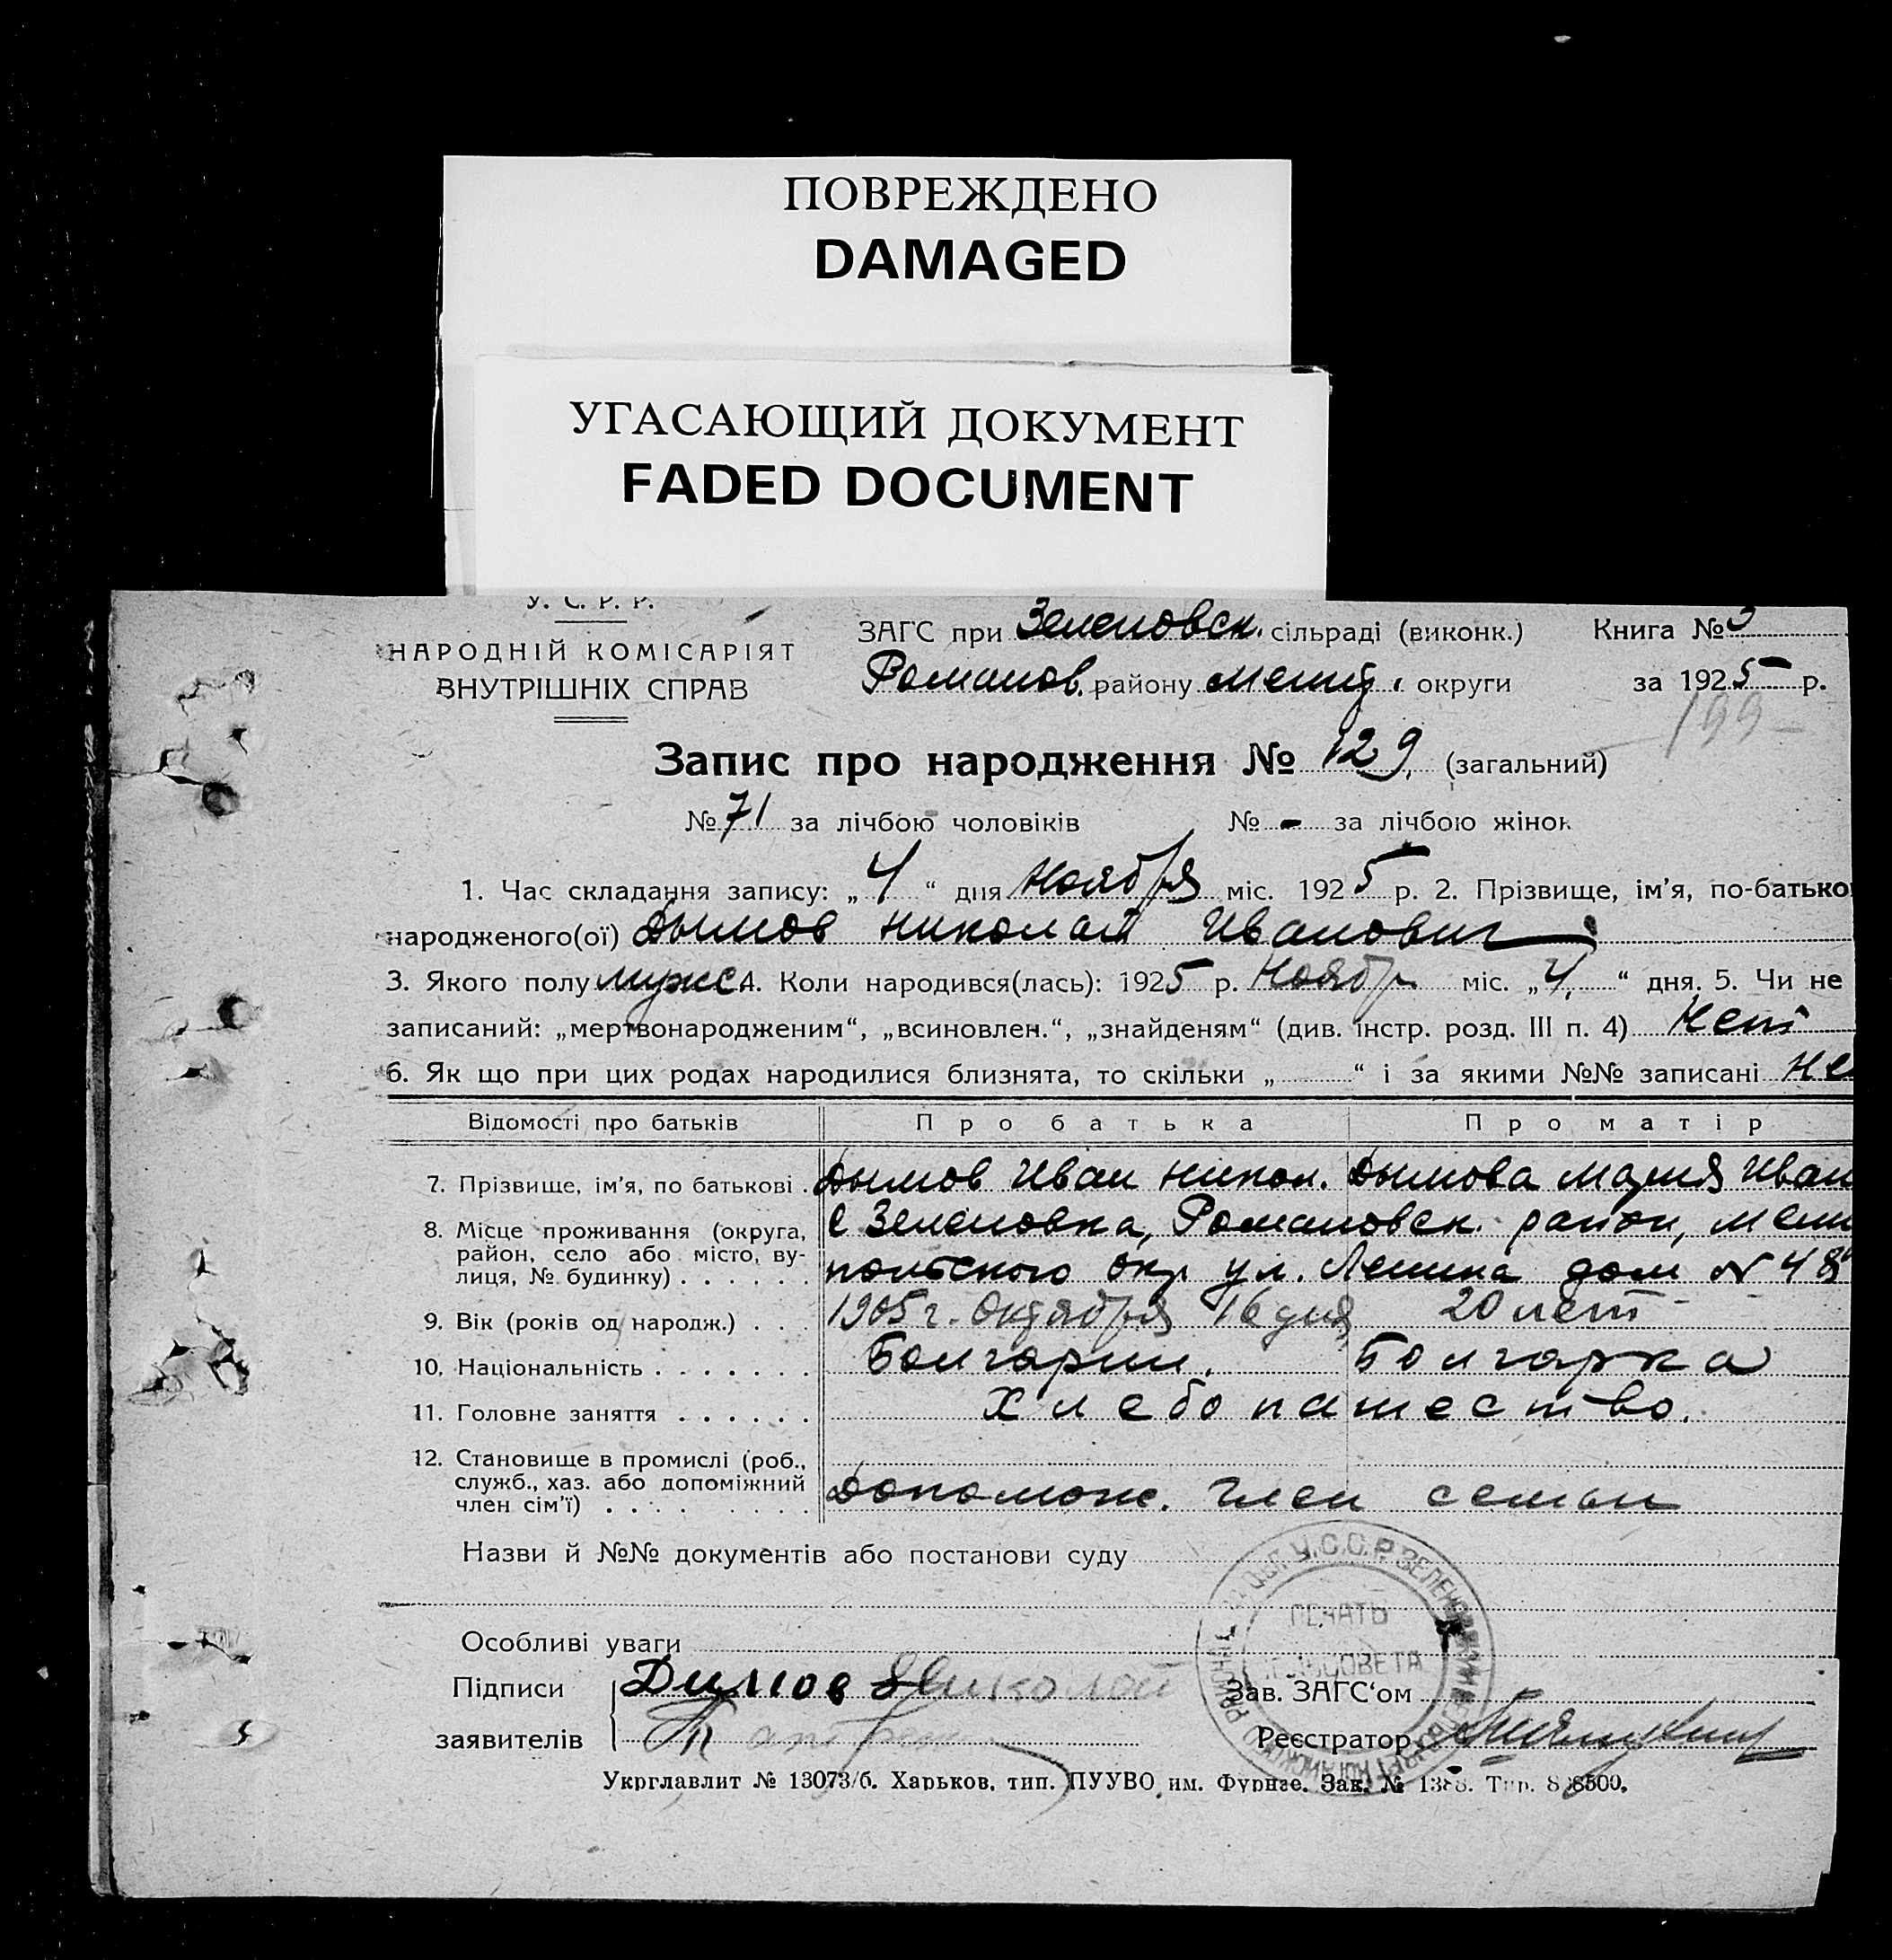 ПОВРЕЖДЕНО
DAMAGED
УГАСАЮЩИЙ ДОКУМЕНТ
FADED DOCUMENT
У. С. Р. Р.
НАРОДНІЙ КОМІСАРІЯТ
ВНУТРІШНІХ СПРАВ
ЗАГС при Зеленовск. сільраді (виконк.) Книга №3
Романов. району мелит. округи за 1925 р.
199
Запис про народження № 129 (загальний)
№ 71 за лічбою чоловіків № - за лічбою жінок
1. Час складання запису: „4“ дня Ноября міс. 1925 р. 2. Прізвище, ім'я, по-батько
народженого(ої) Дымов Николай Иванович
3. Якого полу мужс 4. Коли народився(лась): 1925 р. Ноябр міс. „4.“ дня. 5. Чи не
записаний: „мертвонародженим“, „всиновлен.“, „знайденям“ (див. інстр. розд. III п. 4) Нет
6. Як що при цих родах народилися близнята, то скільки „ “ і за якими №№ записані не
Відомості про батьків Про батька Про матір
7. Прізвище, ім'я, по батькові . Дымов Иван Никол. Дымова Мария Иван
8. Місце проживання (округа, район, село або місто, ву-лиця, № будинку) . . . . . . с Зеленовка, Романовск. район, мели
польского окр ул. Ленина дом № 48
9. Вік (років од народж.) . . . 1905 г. Октября 16 дня 20 лет
10. Національність . . . . . . . Болгарин. Болгарка
11. Головне заняття . . . . . . Хлебопашество.
12. Становище в промислі (роб., служб., хаз. або допоміжний член сім'ї) . . . . . . . . Допомож. член семьи
Назви й №№ документів або постанови суду
У.С.С.Р. ЗЕЛЕНО
ПЕЧАТЬ
СОВЕТА
Особливі уваги
Підписи Димов Николай Зав. ЗАГС'ом
заявителів Реєстратор
Укрглавлит № 13073/б. Харьков, тип. ПУУВО им. Фурнзе. Зак. №